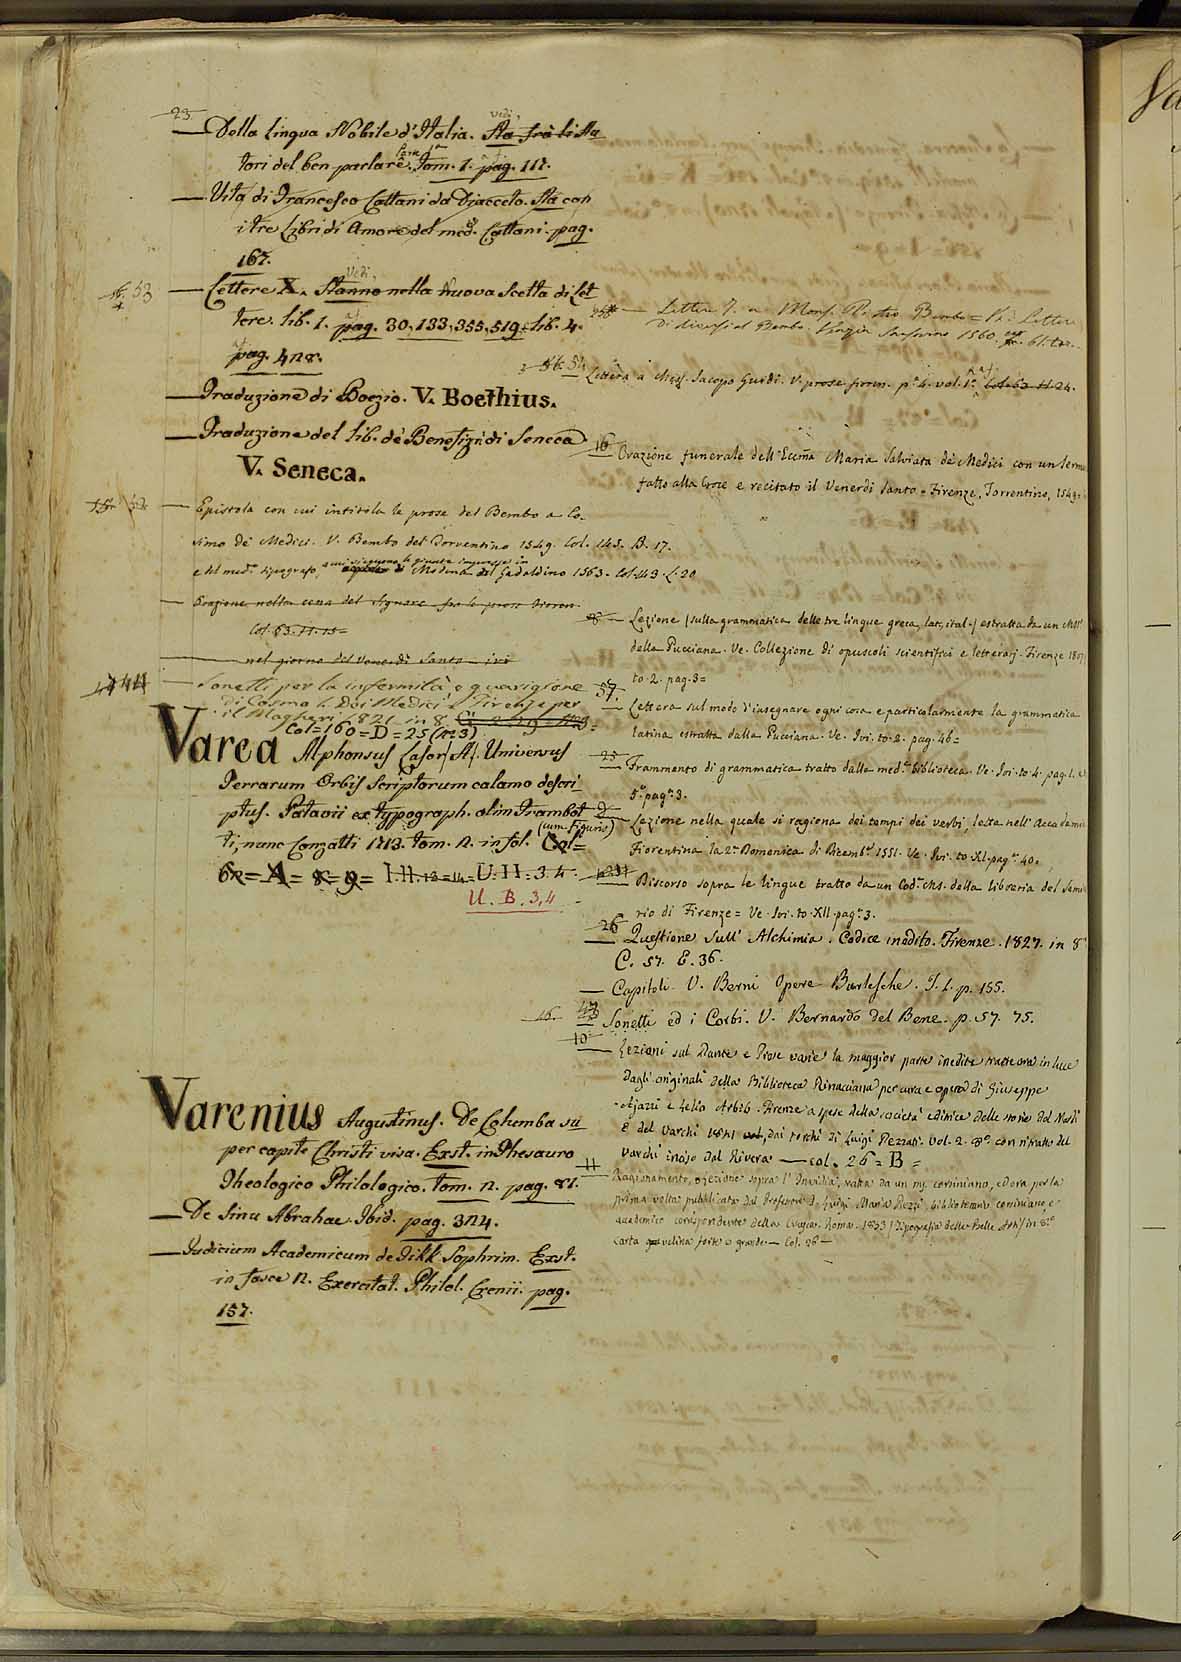 23
— Della Lingua Nobile d'Italia. vedi Sta frà li Au
tori del ben parlare. Tom. 1. pag. 117.
— Vita di Francesco Cattani da Diacceto. Sta con
i tre Libri di Amore del med. Cattani. pag.
167.
53
— Lettere X. Vedi Stanno nella Nuova Scelta di Let
tere. lib. 1. pag. 30, 133, 355, 519. lib. 4.
pag. 428.
— Traduzione di Boezio. V. Boethius.
— Traduzione del lib. de' Benefizi di Seneca
V. Seneca.
— Epistola con cui intitola le prose del Bembo a Co-
simo de Medici. V. Bembo del Torrentino 1549. Col. 145. B. 17.
e del med.º tipografo, Modena del Gadaldino 1563. Col. 143. L. 20
— Orazione nella cena del Signore
Col. 63. H. 15=
— nel giorno del Venerdì Santo ivi
44
— Sonetti per la infermità e guarigione
di Cosmo I. Dei Medici Firenze per
il Magheri 1821 in 8.
Col=160=D=25 (nº3)
Varea Alphonsus Lasor A. Universus
Terrarum Orbis Scriptorum calamo descri
ptus. Patavii ex typograph. olim Frambot
ti, nunc Conzatti 1713. tom. 2. in fol. (cum Figuris) Col=
62=A=8=9= I.H.13=14= U.H.3.4.
U. B. 3,4
Varenius Augustinus. De Columba su
per capite Christi visa. Exst. in Thesauro
Theologico Philologico. tom. 2. pag. 81.
— De Sinu Abrahae. Ibid. pag. 324.
— Judicium Academicum de Dikk Sophrim. Exst.
in fasce 2. Exercitat. Philol. Crenii. pag.
157.
— Lettere 7. a Mons. Pietro Bembo = V. Lettere
di diversi al Bembo. Venezia Sansovino 1560. 61.
Lettera a Mess. Jacopo Guidi. V. prose fioren. p.ª 4. vol. 1.º Col. 63. H. 24.
16
Orazione funerale dell'Eccma Maria Salviata de Medici con un Serm
fatto alla Croce e recitato il Venerdì Santo = Firenze, Torrentino, 1549.
— Lezione (sulla grammatica delle tre lingue greca, lat., ital.) estratta da un MSS
della Pucciana. Ve. Collezione di opuscoli scientifici e letterarj. Firenze 1807
to. 2. pag. 3=
57.
Lettera sul modo d'insegnare ogni cosa e particolarmente la grammatica
latina estratta dalla Pucciana. Ve. Ivi. to. 2. pag. 46=
25
Frammento di grammatica tratto dalla med.ª biblioteca. Ve. Ivi. to. 4. pag. 1. e
5.º pag.ª 3.
Lezione nella quale si ragiona dei tempi dei verbi, letta nell'Accademia
Fiorentina la 2.ª Domenica di Dicemb.e 1551. Ve. Ivi. to. XI. pag.ª 40.
Discorso sopra le lingue tratto da un Cod.e MS. della libreria del Semi
rio di Firenze = Ve. Ivi. to. XII. pag.ª 3.
26
— Questione sull'Alchimia. Codice inedito. Firenze. 1827. in 8º
C. 57. E. 36.
— Capitoli. V. Berni Opere Burlesche. T. 1. p. 155.
Sonetti ed i Corbi. V. Bernardo del Bene. p. 57. 75.
10
— Lezioni sul Dante e Prose varie la maggior parte inedite tratte ora in luce
dagli originali della Biblioteca Rinucciana per cura e opera di Giuseppe
Aiazzi e Lelio Arbib. Firenze a spese della società editrice delle storie del Nardi
e del Varchi 1841 dai torchi di Luigi Pezzati. Vol. 2. 8º. con ritratto del
Varchi inciso dal Rivera — col. 26 = B =
11
Ragionamento, o lezione sopra l'Invidia, tratta da un ms. corsiniano, ed ora per la
prima volta pubblicata dal Professore D. Luigi Maria Rezzi, bibliotecario corsiniano, e
accademico corrispondente della Crusca. Roma. 1853 (Tipografia delle Belle Arti) in 8.º
carta velina forte e grande. — Col. 26 —